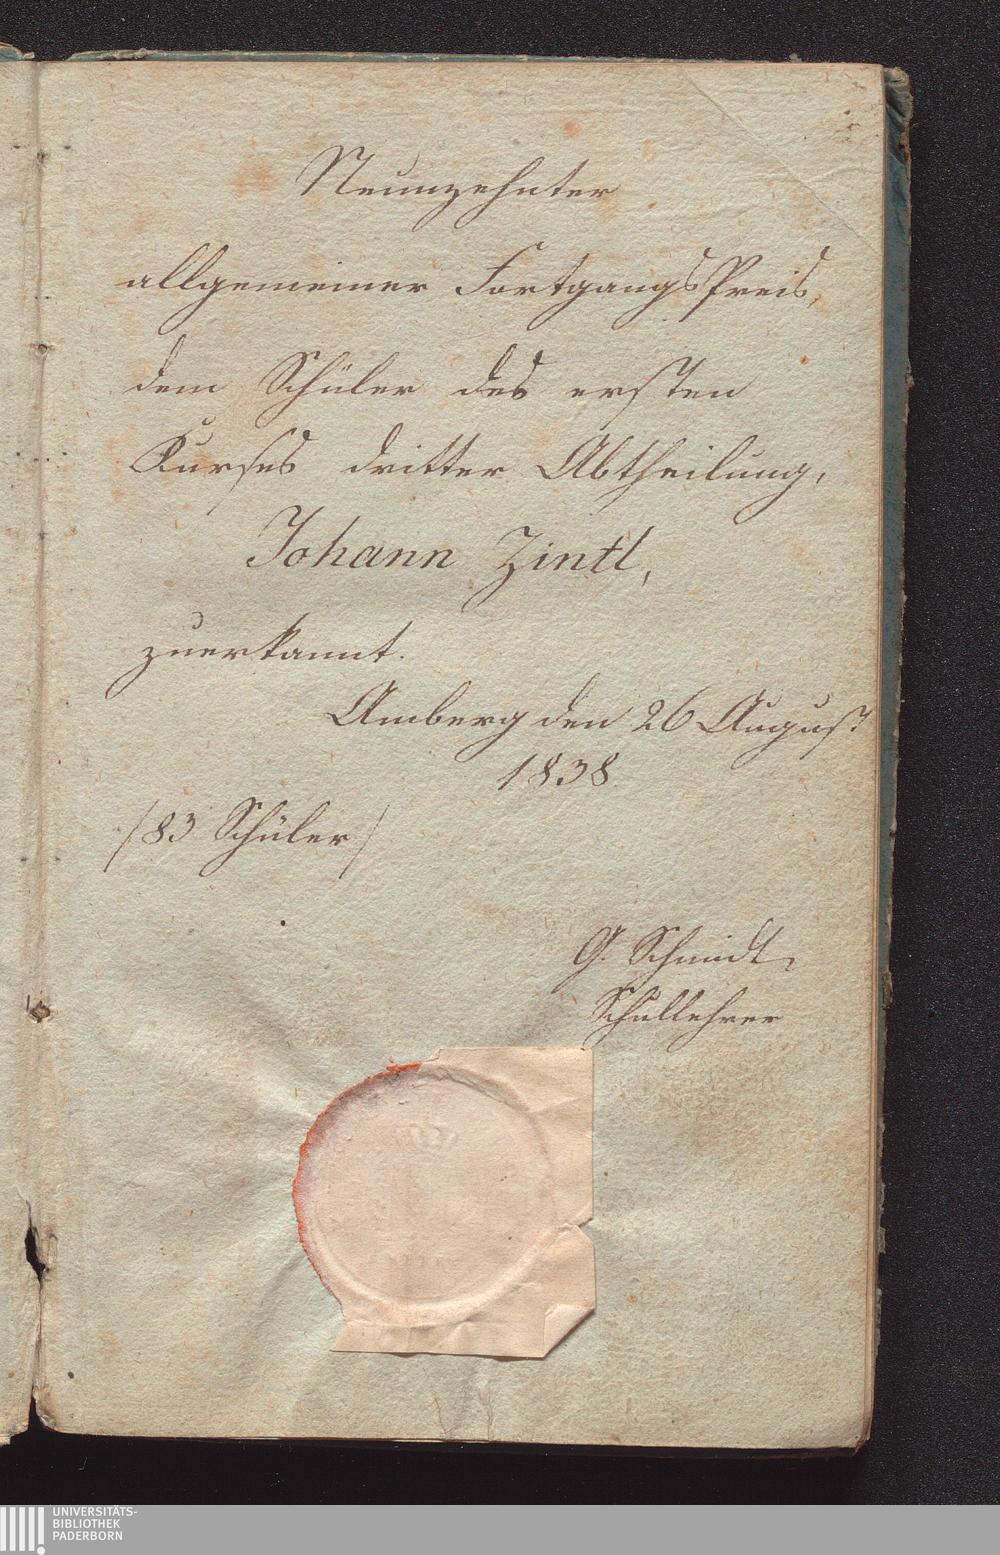 Neunzehnter
allgemeiner Fortgangs Preis,
dem Schüler des ersten
Kurses dritter Abtheilung,
Johann Zintl,
zuerkannt.
Amberg den 26 August
1838.
/83 Schüler/
G. Schmidt,
Schullehrer
UNIVERSITÄTS-
BIBLIOTHEK
PADERBORN